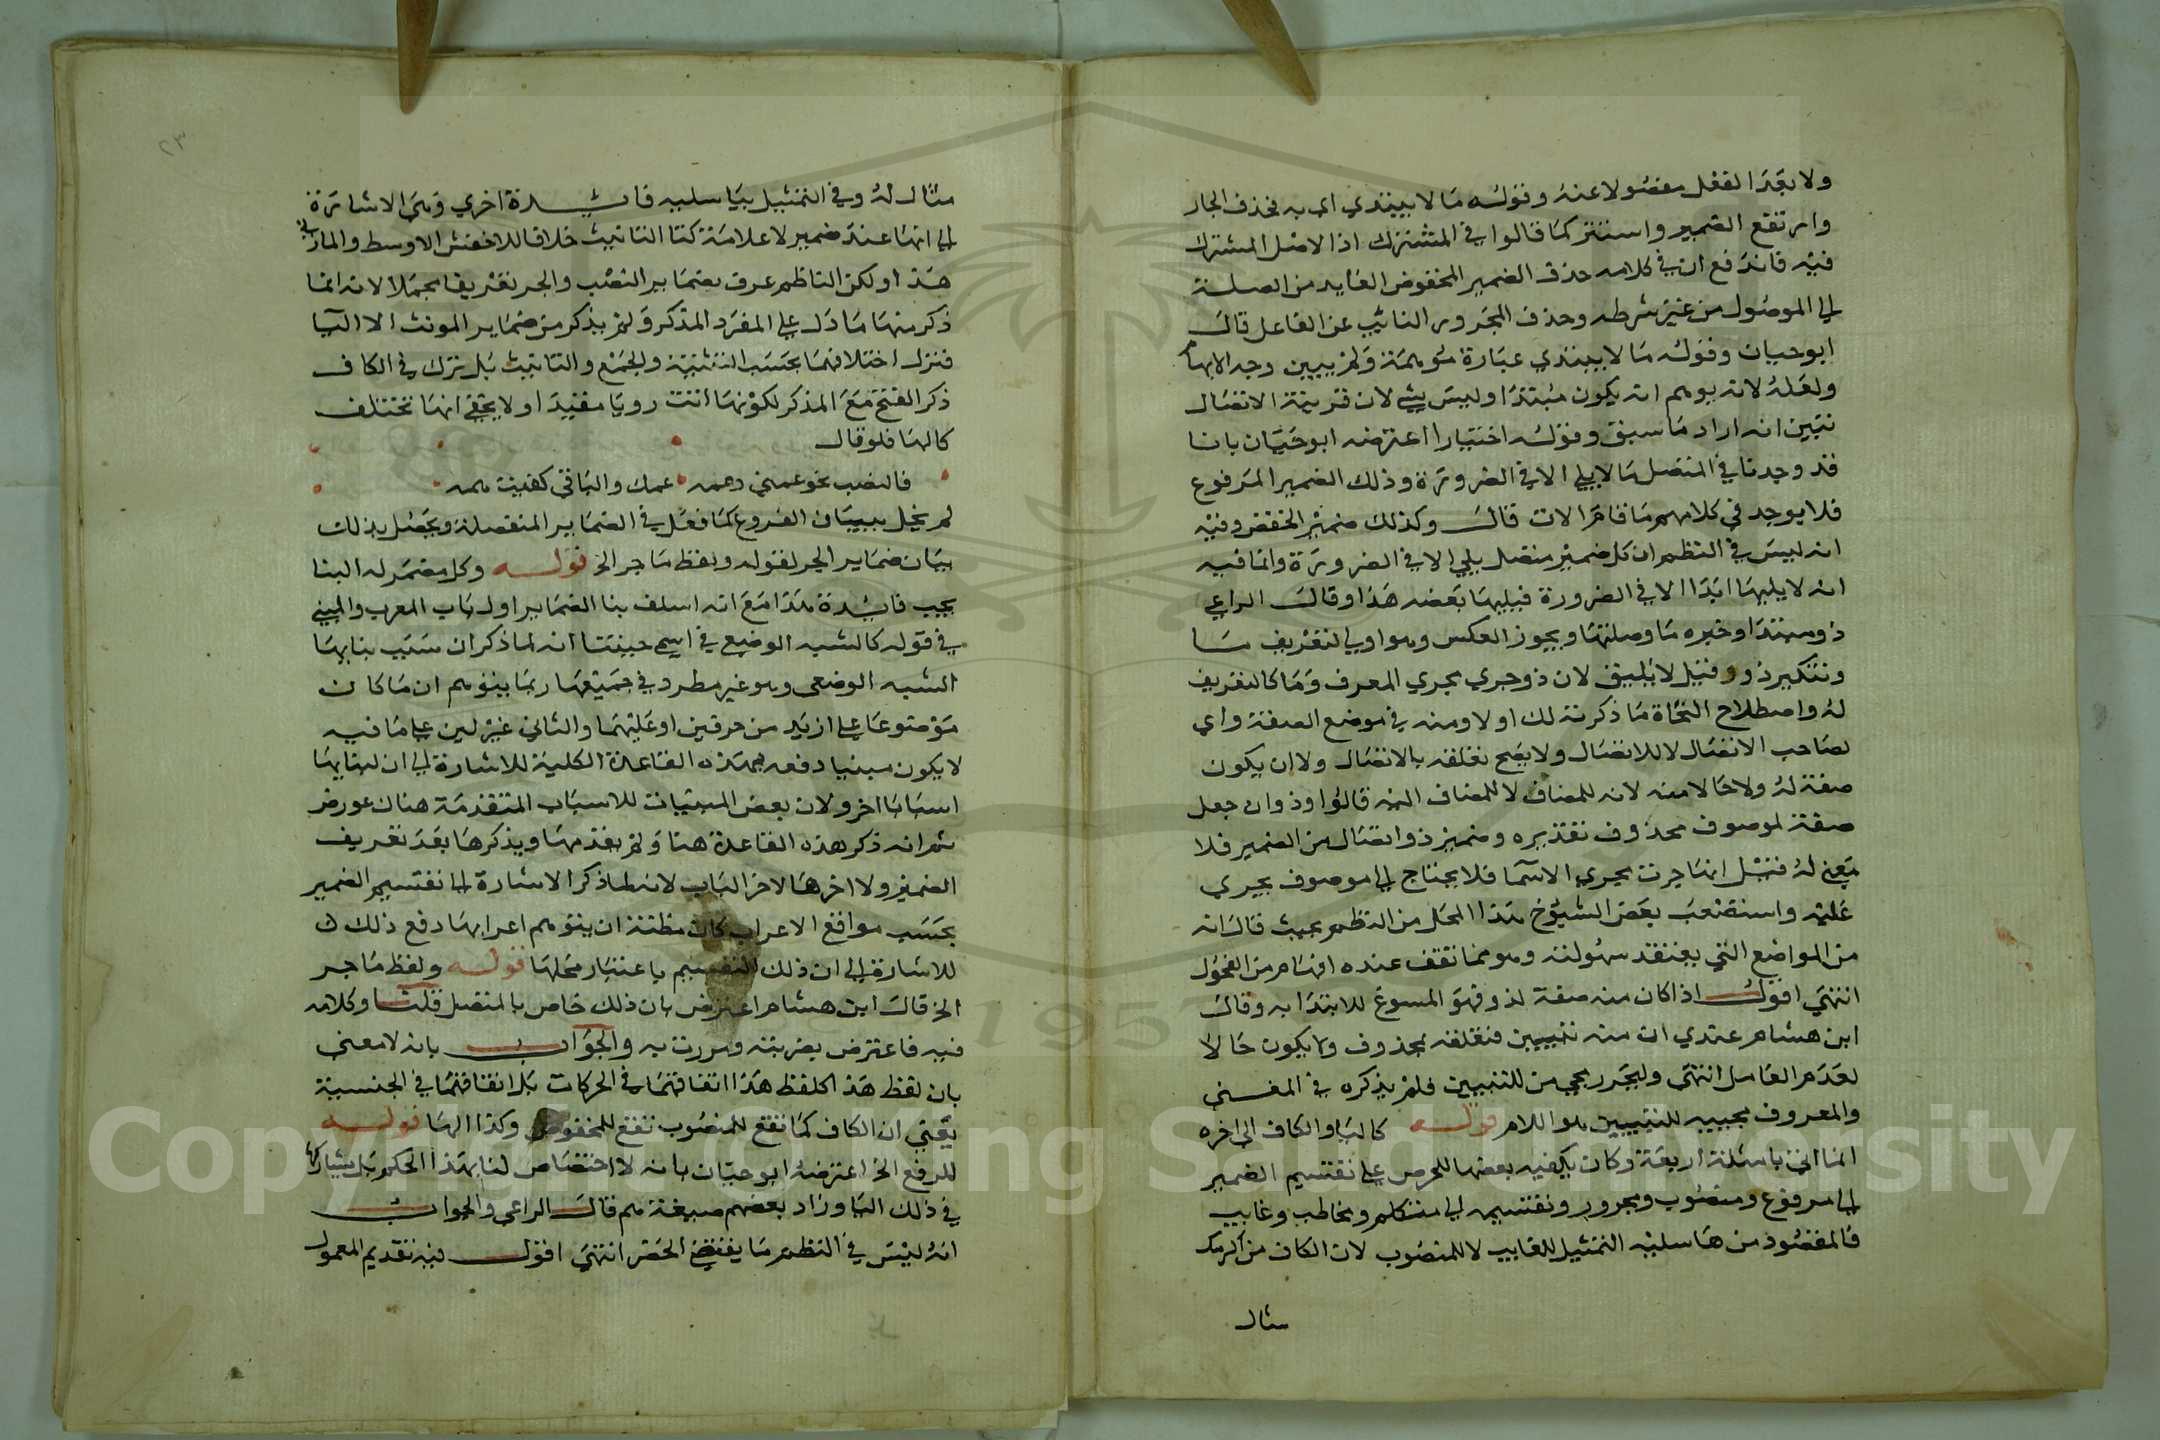 ولا يعد الفعل مفصولا عنه وقوله ما لا يبتدي اي به فحذف الجار
وارتفع الضمير واستتر كما قالوا في المشترك اذ الاصل المشترك
فيه فاندفع ان في كلامه حذف الضمير المخفوض العايد من الصلة
الي الموصول من غير شرطه وحذف المجرور النائب عن الفاعل قال
ابو حيان وقوله ما لا يبتدي عبارة موهمة ولم يبين وجه الابهام
ولعله لانه يوهم انه يكون مبتدا وليس بشي لان قرينة الاتصال
تبين انه اراد ما سبق وقوله اختيارا اعترضه ابو حيان بانا
قد وجدنا في المتصل ما لا يلي الا في الضرورة وذلك الضمير المرفوع
فلا يوجد في كلامهم ما قام الات قال وكذلك ضمير الخفض وفيه
انه ليس في النظم ان كل ضمير متصل يلي الا في الضرورة وانما فيه
انه لا يليها ابدا الا في الضرورة فيليها بعضه هذا وقال الراعي
ذو مبتدا وخبره ما وصلتها ويجوز العكس وهو اولي لتعريف ما
وتنكير ذو وقيل لا يليق لان ذو جري مجري المعرف وما كالتعريف
له واصطلاح النحاة ما ذكرته لك اولا ومنه في موضع الصفة واي
لصاحب الاتصال لا للاتصال ولا يصح تعلقه بالاتصال ولا ان يكون
صفة له ولا حالا منه لانه للمضاف لا للمضاف اليه قالوا وذو ان جعل
صفة لموصوف محذوف تقديره وضمير ذو اتصال من الضمير فلا
معني له فقيل انها جرت مجري الاسما فلا يحتاج الي موصوف يجري
عليه واستصعب بعض الشيوخ هذا المحل من النظم بحيث قال انه
من المواضع التي يعتقد سهولته وهو مما تقف عنده افهام من الفحول
انتهي اقول اذا كان منه صفة لذو فهو المسوغ للابتدا به وقال
ابن هشام عندي ان منه تبيين فتعلقه بمحذوف ولا يكون حالا
لعدم العامل انتهي وليحرر مجي من للتبيين فلم يذكره في المغني
والمعروف مجييه للتبيين هو اللام قوله كاليا والكاف الي اخره
انما اتي باسئلة اربعة وكان يكفيه بعضها للحرص علي تقسيم الضمير
الي مرفوع ومنصوب ومجرور وتقسيمه الي متكلم ومخاطب وغايب
فالمقصود من ها سلنيه التمثيل للغايب لا للمنصوب لان الكاف من اكرمك
مثال
٢٣
مثال له وفي التمثيل بيا سلنيه فائدة اخري وهي الاشارة
الي انها عنده ضمير لا علامة كتا التانيث خلافا للاخفش الاوسط والمازني
هذا ولكن الناظم عرف بضماير النصب والجر تعريفا مجملا لانه انما
ذكر منها ما دل علي المفرد المذكر ولم يذكر من ضماير المونث الا اليا
فترك اختلافهما بحسب التثنية والجمع والتانيث بل ترك في الكاف
ذكر الفتح مع المذكر لكونها اتت رويا مقيدا ولا يخفي انها تختلف
كالها فلو قال
فالنصب نحو عمني وعمه عمك والباقي كفيت همه
لم يخل ببيان الفروع كما فعل في الضماير المنفصلة ويحصل بذلك
بيان ضماير الجر لقوله ولفظ ما جر الخ قوله وكل مضمر له البنا
يجب فائدة هذا مع انه اسلف بنا الضماير اول باب المعرب والمبني
في قوله كالشبه الوضعي في اسمي جيتنا انه لما ذكر ان سبب بنايها
الشبه الوضعي وهو غير مطرد في جميعها ربما يتوهم ان ما كان
موضوعا علي ازيد من حرفين او عليهما والثاني غير لين علي ما فيه
لا يكون مبنيا دفعه بهذه القاعدة الكلية للاشارة الي ان لبنايها
اسبابا اخر ولان بعض المبنيات للاسباب المتقدمة هناك عورض
ثم انه ذكر هذه القاعدة هنا ولم يقدمها ويذكرها بعد تعريف
الضمير ولا اخرها لاخر الباب لانه لما ذكر الاشارة الي تقسيم الضمير
بحسب مواقع الاعراب كان مظنة ان يتوهم اعرابها دفع ذلك
للاشارة الي ان ذلك التقسيم باعتبار محلها قوله ولفظ ما جر
الخ قال ابن هشام اعترض بان ذلك خاص بالمتصل قلنا وكلامه
فيه فاعترض بضربته ومررت به والجواب بانه لا معني
بان لفظ هذا كلفظ هذا اتفاقهما في الحركات بل اتفاقهما في الجنسية
يعني ان الكاف كما تقع للمنصوب تقع للمخفوض وكذا الها قوله
للرفع الخ اعترضه ابو حيان بانه لا اختصاص لنا بهذا الحكم بل يشاركها
في ذلك اليا وزاد بعضهم صيغة هم قال الراعي والجواب
انه ليس في النظم ما يقتضي الحصر انتهي اقول فيه تقديم المعمول